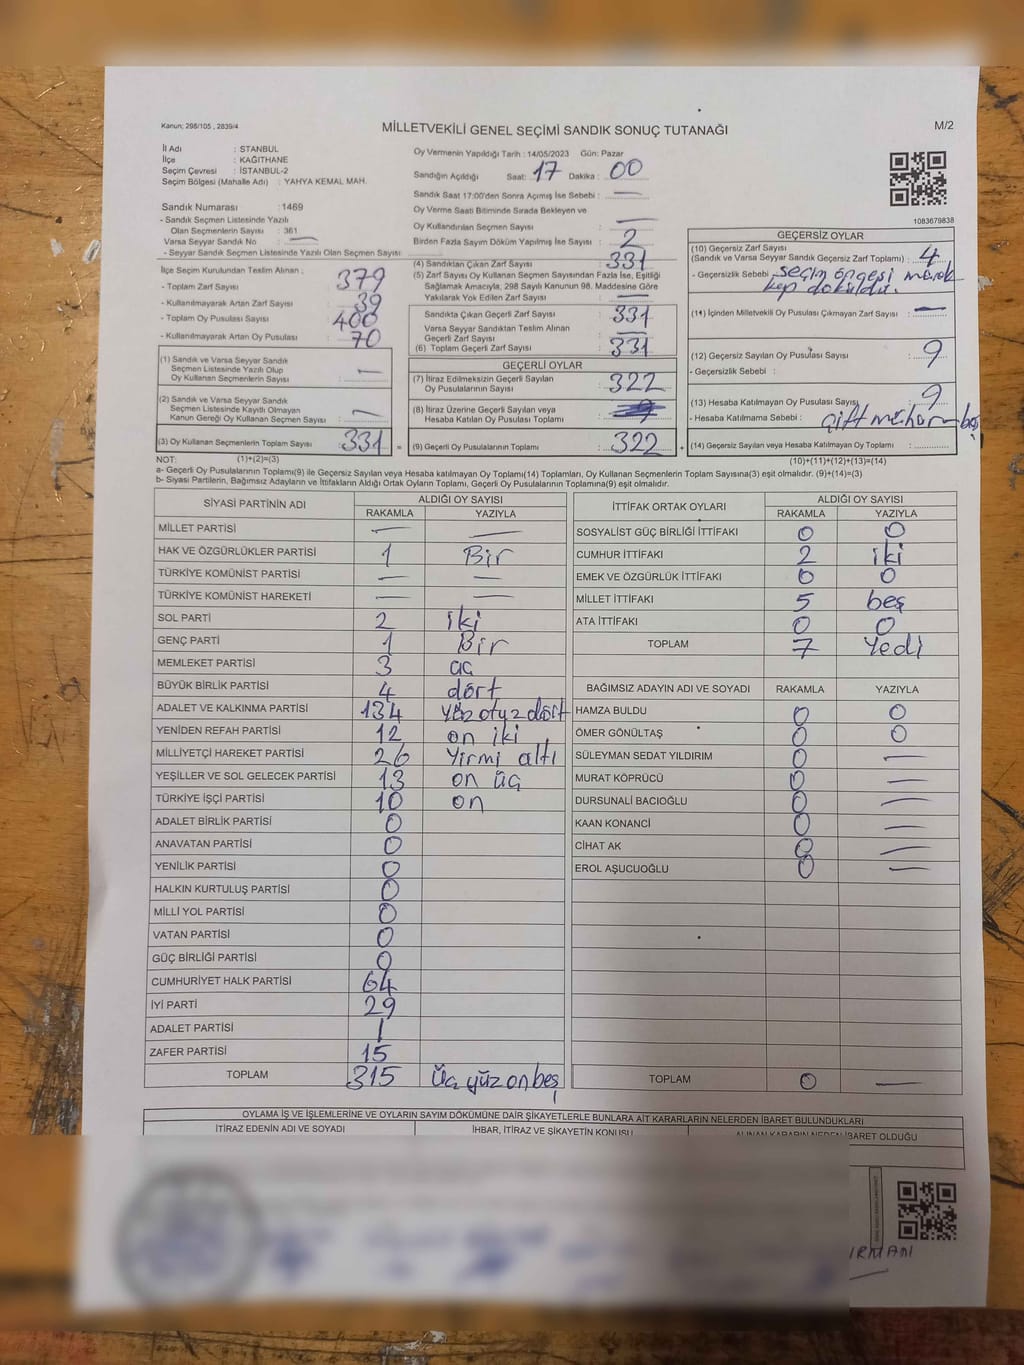 Kanun; 298/105 , 2839/4
MİLLETVEKİLİ GENEL SEÇİMİ SANDIK SONUÇ TUTANAĞI
M/2
İl Adı : STANBUL
İlçe : KAĞITHANE
Seçim Çevresi : İSTANBUL-2
Seçim Bölgesi (Mahalle Adı) : YAHYA KEMAL MAH.
Sandık Numarası : 1469
- Sandık Seçmen Listesinde Yazılı
Olan Seçmenlerin Sayısı : 361
Varsa Seyyar Sandık No : —
- Seyyar Sandık Seçmen Listesinde Yazılı Olan Seçmen Sayısı :
Oy Vermenin Yapıldığı Tarih : 14/05/2023 Gün: Pazar
Sandığın Açıldığı Saat: 17 Dakika : 00
Sandık Saat 17:00'den Sonra Açılmış İse Sebebi : —
Oy Verme Saati Bitiminde Sırada Bekleyen ve
Oy Kullandırılan Seçmen Sayısı : —
Birden Fazla Sayım Döküm Yapılmış İse Sayısı : 2
1083679838
İlçe Seçim Kurulundan Teslim Alınan ;
- Toplam Zarf Sayısı : 379
- Kullanılmayarak Artan Zarf Sayısı : 39
- Toplam Oy Pusulası Sayısı : 400
- Kullanılmayarak Artan Oy Pusulası : 70
(1) Sandık ve Varsa Seyyar Sandık
Seçmen Listesinde Yazılı Olup
Oy Kullanan Seçmenlerin Sayısı : —
(2) Sandık ve Varsa Seyyar Sandık
Seçmen Listesinde Kayıtlı Olmayan
Kanun Gereği Oy Kullanan Seçmen Sayısı : —
(3) Oy Kullanan Seçmenlerin Toplam Sayısı : 331 =
(4) Sandıktan Çıkan Zarf Sayısı : 331
(5) Zarf Sayısı Oy Kullanan Seçmen Sayısından Fazla İse, Eşitliği
Sağlamak Amacıyla, 298 Sayılı Kanunun 98. Maddesine Göre
Yakılarak Yok Edilen Zarf Sayısı : —
Sandıkta Çıkan Geçerli Zarf Sayısı : 331
Varsa Seyyar Sandıktan Teslim Alınan
Geçerli Zarf Sayısı : —
(6) Toplam Geçerli Zarf Sayısı : 331
GEÇERLİ OYLAR
(7) İtiraz Edilmeksizin Geçerli Sayılan
Oy Pusulalarının Sayısı : 322
(8) İtiraz Üzerine Geçerli Sayılan veya
Hesaba Katılan Oy Pusulası Toplamı :
(9) Geçerli Oy Pusulalarının Toplamı : 322 +
GEÇERSİZ OYLAR
(10) Geçersiz Zarf Sayısı
(Sandık ve Varsa Seyyar Sandık Geçersiz Zarf Toplamı) : 4
- Geçersizlik Sebebi :
(11) İçinden Milletvekili Oy Pusulası Çıkmayan Zarf Sayısı : —
(12) Geçersiz Sayılan Oy Pusulası Sayısı : 9
- Geçersizlik Sebebi :
(13) Hesaba Katılmayan Oy Pusulası Sayısı : 9
- Hesaba Katılmama Sebebi : çift
(14) Geçersiz Sayılan veya Hesaba Katılmayan Oy Toplamı :
NOT: (1)+(2)=(3)
(10)+(11)+(12)+(13)=(14)
a- Geçerli Oy Pusulalarının Toplamı(9) ile Geçersiz Sayılan veya Hesaba katılmayan Oy Toplamı(14) Toplamları, Oy Kullanan Seçmenlerin Toplam Sayısına(3) eşit olmalıdır. (9)+(14)=(3)
b- Siyasi Partilerin, Bağımsız Adayların ve İttifakların Aldığı Ortak Oyların Toplamı, Geçerli Oy Pusulalarının Toplamına(9) eşit olmalıdır.
SİYASİ PARTİNİN ADI ALDIĞI OY SAYISI
RAKAMLA YAZIYLA
MİLLET PARTİSİ — —
HAK VE ÖZGÜRLÜKLER PARTİSİ 1 Bir
TÜRKİYE KOMÜNİST PARTİSİ — —
TÜRKİYE KOMÜNİST HAREKETİ — —
SOL PARTİ 2 iki
GENÇ PARTİ 1 Bir
MEMLEKET PARTİSİ 3 üç
BÜYÜK BİRLİK PARTİSİ 4 dört
ADALET VE KALKINMA PARTİSİ 134 yüz otuz dört
YENİDEN REFAH PARTİSİ 12 on iki
MİLLİYETÇİ HAREKET PARTİSİ 26 Yirmi altı
YEŞİLLER VE SOL GELECEK PARTİSİ 13 on üç
TÜRKİYE İŞÇİ PARTİSİ 10 on
ADALET BİRLİK PARTİSİ 0
ANAVATAN PARTİSİ 0
YENİLİK PARTİSİ 0
HALKIN KURTULUŞ PARTİSİ 0
MİLLİ YOL PARTİSİ 0
VATAN PARTİSİ 0
GÜÇ BİRLİĞİ PARTİSİ 0
CUMHURİYET HALK PARTİSİ 64
İYİ PARTİ 29
ADALET PARTİSİ 1
ZAFER PARTİSİ 15
TOPLAM 315 üç yüz on beş
İTTİFAK ORTAK OYLARI ALDIĞI OY SAYISI
RAKAMLA YAZIYLA
SOSYALİST GÜÇ BİRLİĞİ İTTİFAKI 0 0
CUMHUR İTTİFAKI 2 iki
EMEK VE ÖZGÜRLÜK İTTİFAKI 0 0
MİLLET İTTİFAKI 5 beş
ATA İTTİFAKI 0 0
TOPLAM 7 Yedi
BAĞIMSIZ ADAYIN ADI VE SOYADI RAKAMLA YAZIYLA
HAMZA BULDU 0 0
ÖMER GÖNÜLTAŞ 0 0
SÜLEYMAN SEDAT YILDIRIM 0 —
MURAT KÖPRÜCÜ 0 —
DURSUNALİ BACIOĞLU 0 —
KAAN KONANCİ 0 —
CİHAT AK 0 —
EROL AŞUCUOĞLU 0 —
TOPLAM 0 —
OYLAMA İŞ VE İŞLEMLERİNE VE OYLARIN SAYIM DÖKÜMÜNE DAİR ŞİKAYETLERLE BUNLARA AİT KARARLARIN NELERDEN İBARET BULUNDUKLARI
İTİRAZ EDENİN ADI VE SOYADI İHBAR, İTİRAZ VE ŞİKAYETİN KONUSU ALINAN KARARIN NEDEN İBARET OLDUĞU